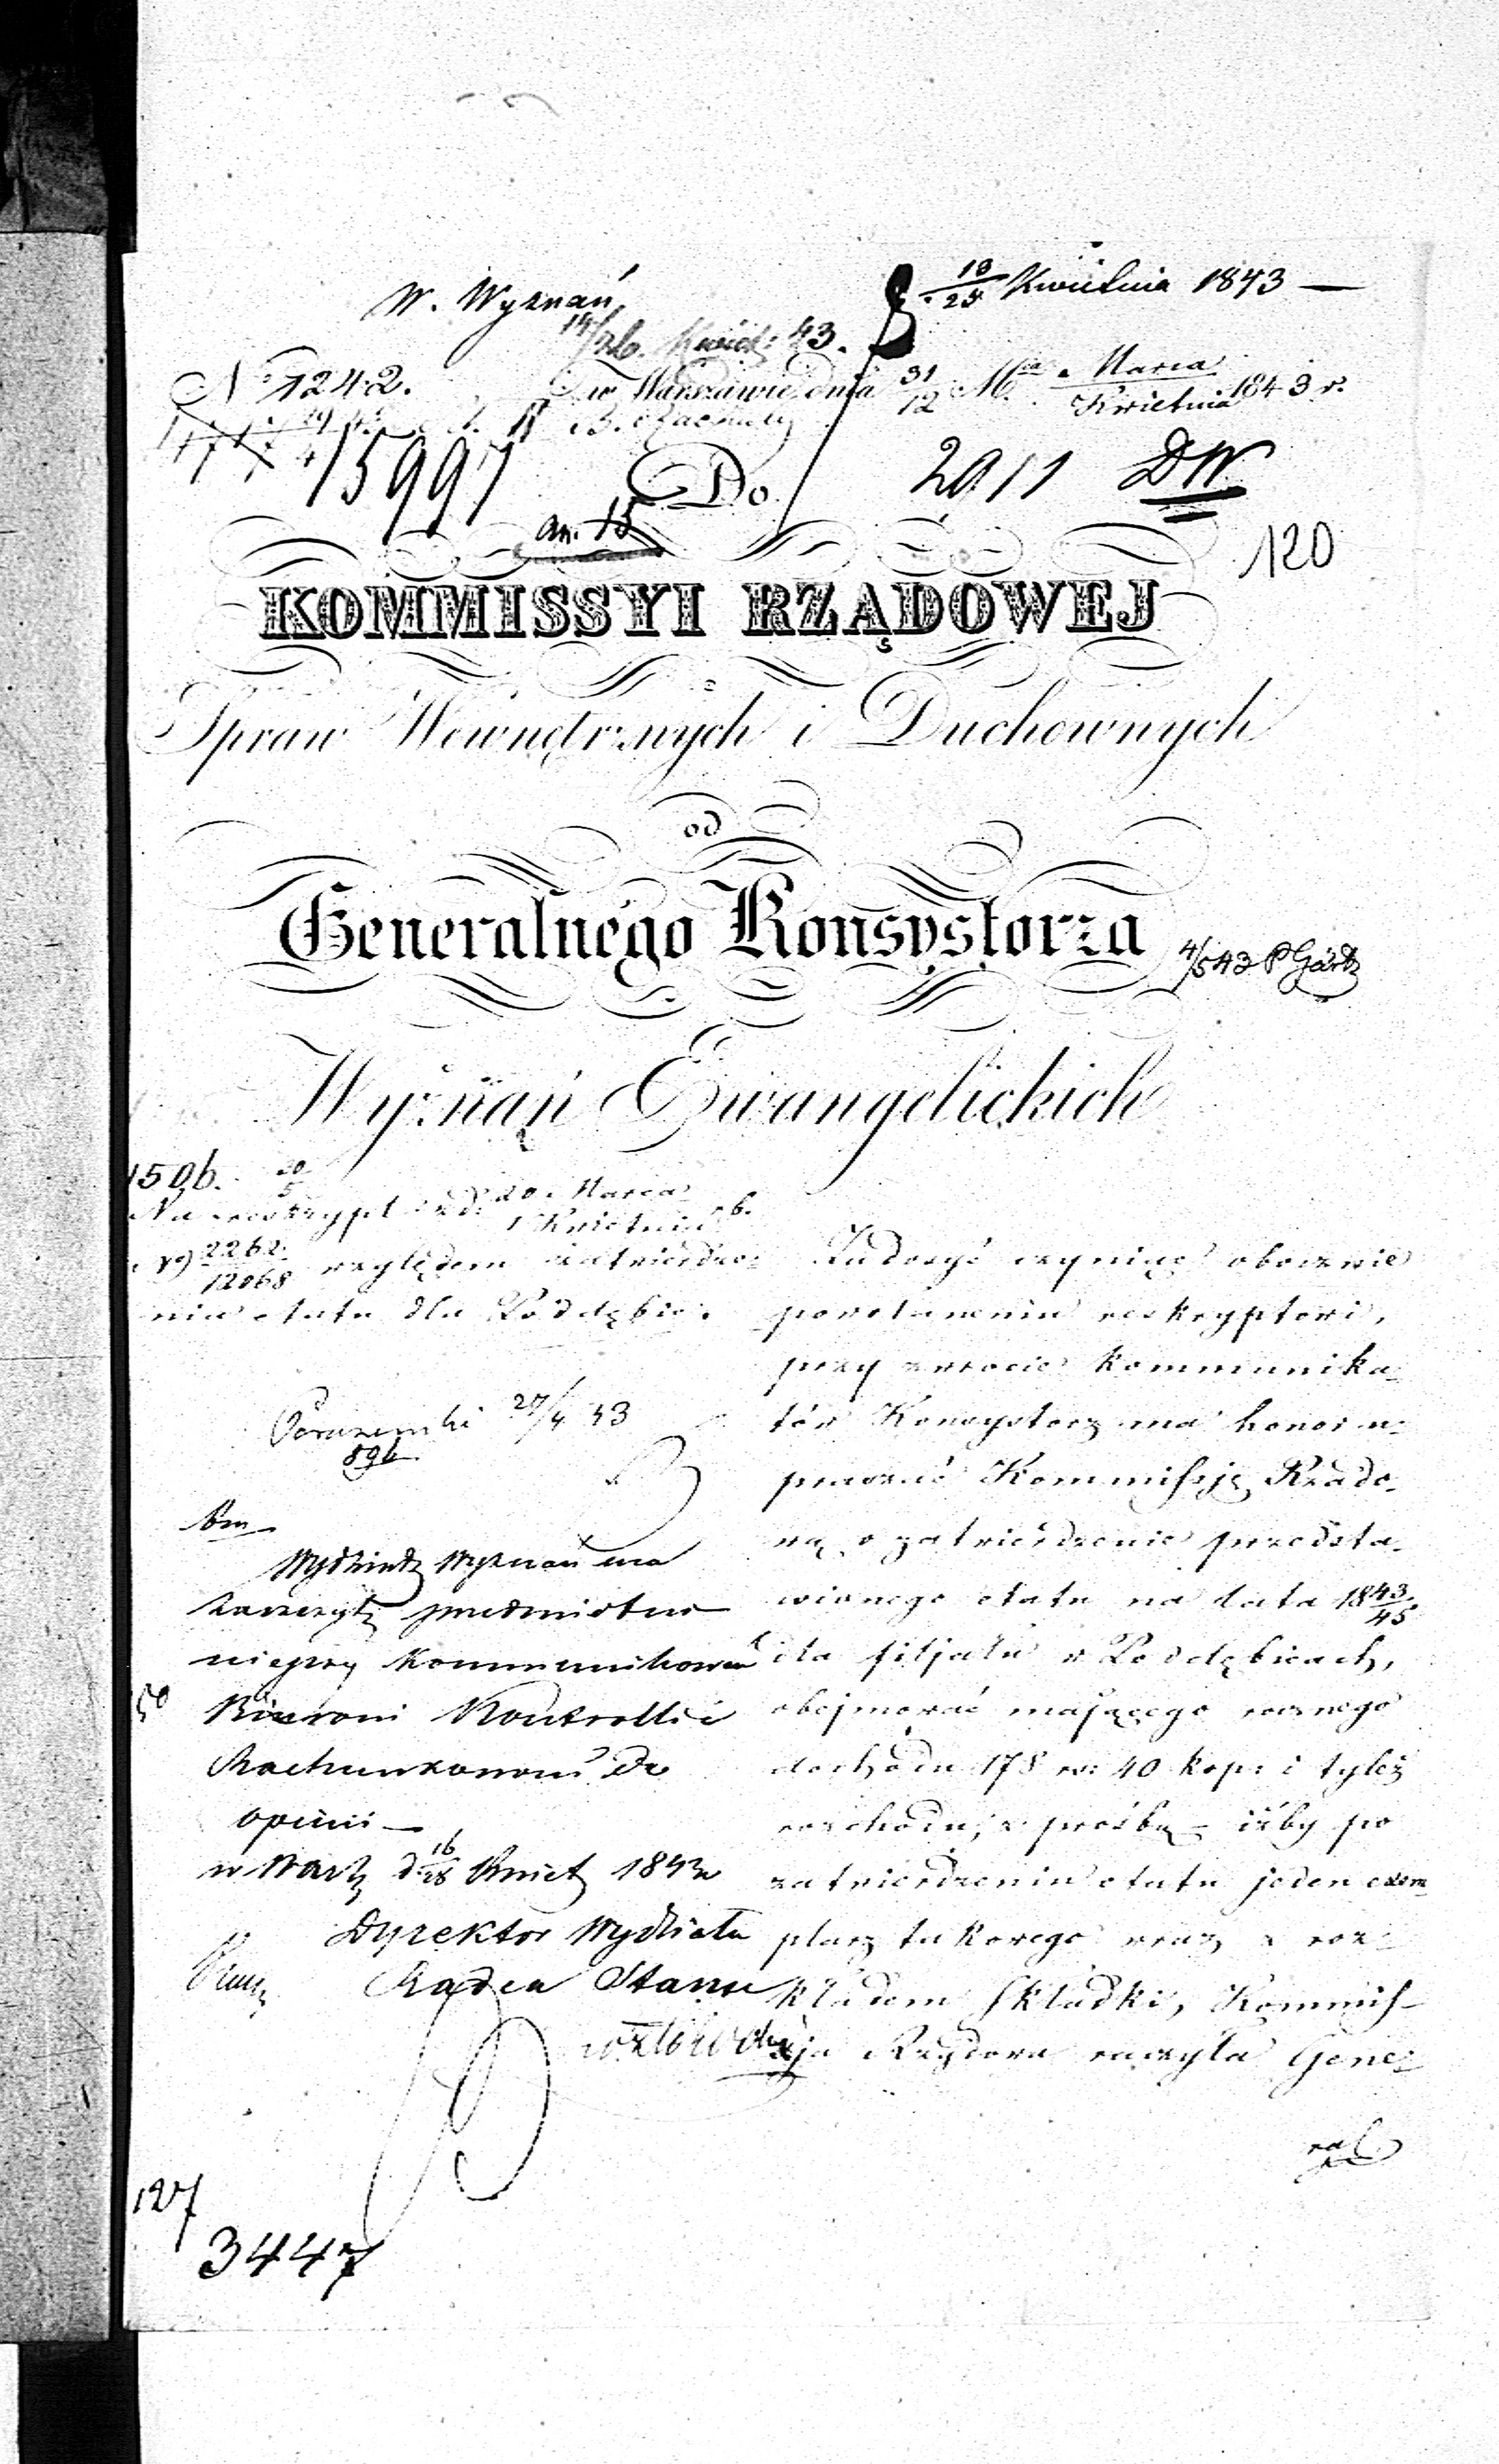 W. Wyznań
13/25 Kwietnia 1843
14/26. Kwiet: 43.
No 1242.
w Warszawie dnia 31/12 Mca Marca/Kwietnia 1843 r.
15997
Do
2911 DW
an. 15
120
KOMMISSYI RZĄDOWEJ
Spraw Wewnętrznych i Duchownych
od
Generalnego Konsystorza
4/5 43
Wyznań Ewangelickich
150b.
Na reskrypt z d: 20 Marca/1 Kwietnia r b.
No 2262/12068 względem zatwierdze:
nia etatu dla Poddębic.
27/4 43
896
Wydział Wyznań ma
zaszczyt przedmiotem
niniejszy kommunikować
Kontrolli i
Rachunkowości do
opinii
w Warsz d. 16/28 Kwiet 1843 r
Dyrektor Wydziału
Radca Stanu
Zadosyć czyniąc obocznie
powołanemu reskryptowi,
przy zwrocie kommunika:
tów Konsystorz ma honor u:
praszać Kommissję Rządo:
wą o zatwierdzenie przedsta:
wionego etatu na lata 1843/45
dla filjału w Poddębicach,
obejmować mającego rocznego
dochodu 178 rs: 40 kop: i tyleż
rozchodu; z prośbą – iżby po
zatwierdzeniu etatu jeden exem
plarz takowego wraz z roz:
kładem składki, Kommis-
sja Rządowa raczyła Gene:
ral
127
3447